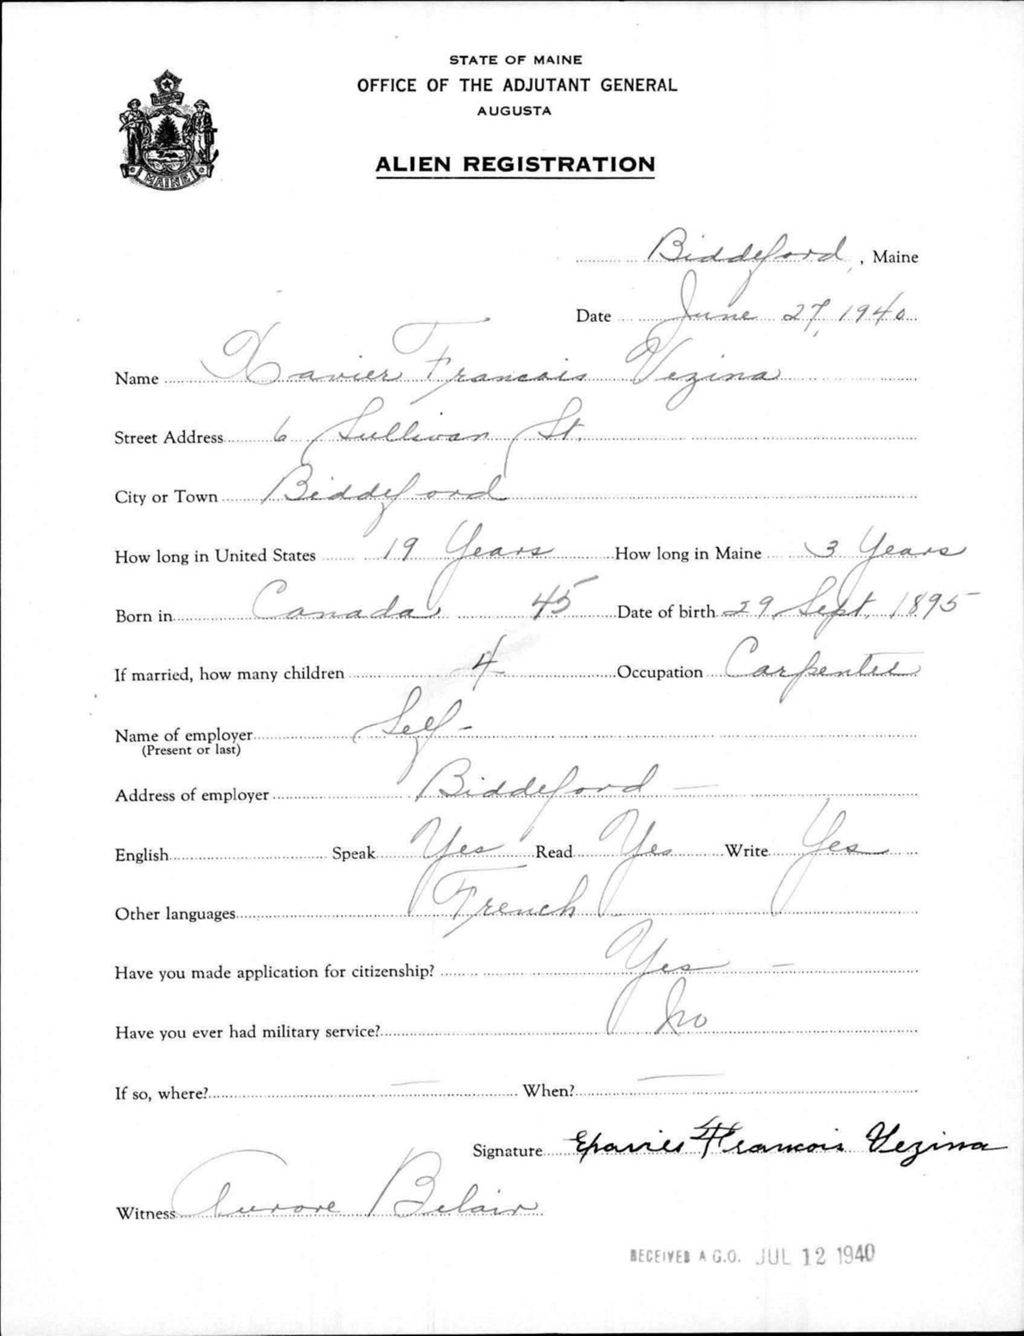 STATE OF MAINE
OFFICE OF THE ADJUTANT GENERAL
AUGUSTA
ALIEN REGISTRATION
MAINE
Biddeford, Maine
Date June 27, 1940
Name Xavier Francois Vezina
Street Address 6 Sullivan St.
City or Town Biddeford
How long in United States 19 Years How long in Maine 3 Years
Born in Canada 45 Date of birth 29 Sept. 1895
If married, how many children 4 Occupation Carpenter
Name of employer Self -
(Present or last)
Address of employer Biddeford -
English Speak Yes Read Yes Write Yes
Other languages French
Have you made application for citizenship? Yes -
Have you ever had military service? No
If so, where? — When? —
Signature Francois Vezina
Witness Aurore Belair
RECEIVED A.G.O. JUL 12 1940